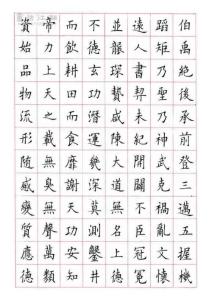 伯禹絕後承前登三邁五握機
蹈矩乃聖乃神武克禍亂文懷
遠人書契未紀開闢不臣冠冕
並襲琛贄咸陳大道無名上德
不德玄功潛運幾深莫測鑿井
而飲耕田而食靡謝天功安知
帝力上天之載無臭無聲萬類
資始品物流形隨感變質應德